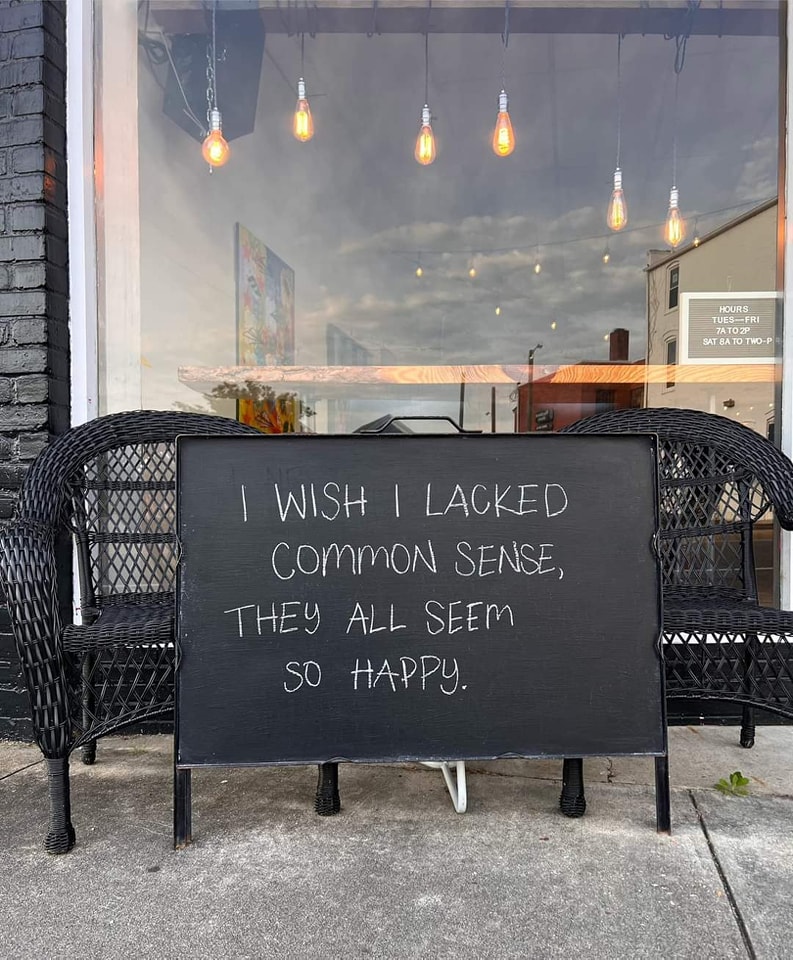 HOURS
TUES—FRI
7A TO 2P
SAT 8A TO TWO-P
I WISH I LACKED
COMMON SENSE,
THEY ALL SEEM
SO HAPPY.